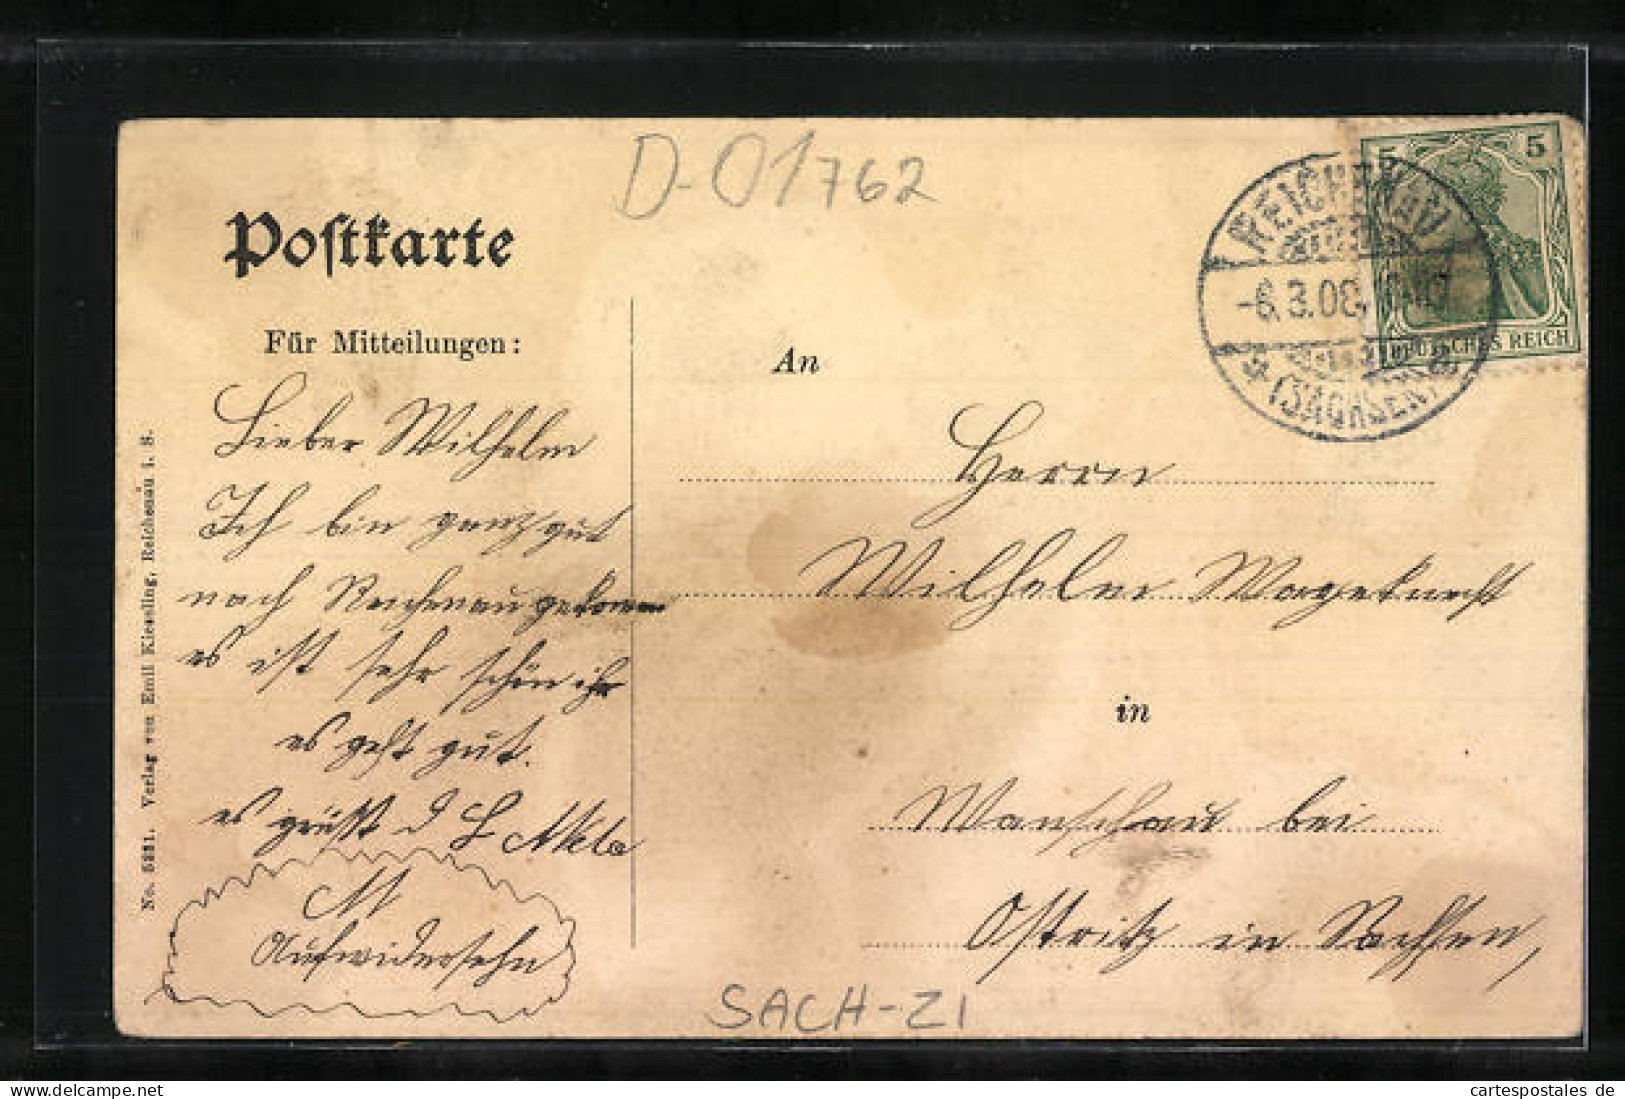 D-01762
Postkarte
Für Mitteilungen:
Lieber Wilhelm
Ich bin ganz gut
nach Reichenau gekommen
es ist sehr schön hir
es geht gut.
es grüßt d L
Aufwidersehn
No. 5221. Verlag von Emil Kiessling, Reichenau i. S.
5 5
DEUTSCHES REICH
REICHENAU
-6.3.08.
(SACHSEN)
An
Herrn
Wilhelm
in
bei
Ostritz in Sachsen,
SACH-ZI
delcampe.net
cartespostales de